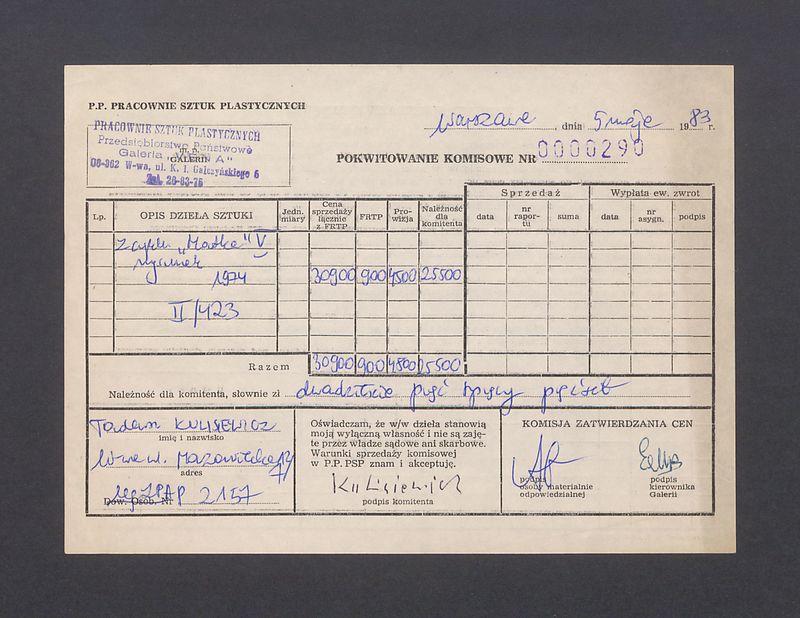 P.P. PRACOWNIE SZTUK PLASTYCZNYCH
Warszawa, dnia 5 maja 1983 r.
PRACOWNIE SZTUK PLASTYCZNYCH
Przedsiębiorstwo Państwowe
Galeria
GALERIA
00-362 W-wa, ul. K. I. Gałczyńskiego 6
Tel. 26-63-75
POKWITOWANIE KOMISOWE NR 0000290
Sprzedaż Wypłata ew. zwrot
Lp. OPIS DZIEŁA SZTUKI Jedn. miary Cena sprzedaży łącznie z FRTP FRTP Prowizja Należność dla komitenta data nr raportu suma data nr asygn. podpis
z cyklu "Matka" V
rysunek
1974 30900 900 4500 25500
II/423
Razem 30900 900 4500 25500
Należność dla komitenta, słownie zł dwadzieścia pięć tysięcy pięćset
Tadeusz KULISIEWICZ
imię i nazwisko
adres
leg. ZPAP 2157
Dow. Osob. Nr
Oświadczam, że w/w dzieła stanowią
moją wyłączną własność i nie są zaję-
te przez władze sądowe ani skarbowe.
Warunki sprzedaży komisowej
w P.P. PSP znam i akceptuję.
Kulisiewicz
podpis komitenta
KOMISJA ZATWIERDZANIA CEN
podpis
osoby materialnie
odpowiedzialnej
podpis
kierownika
Galerii